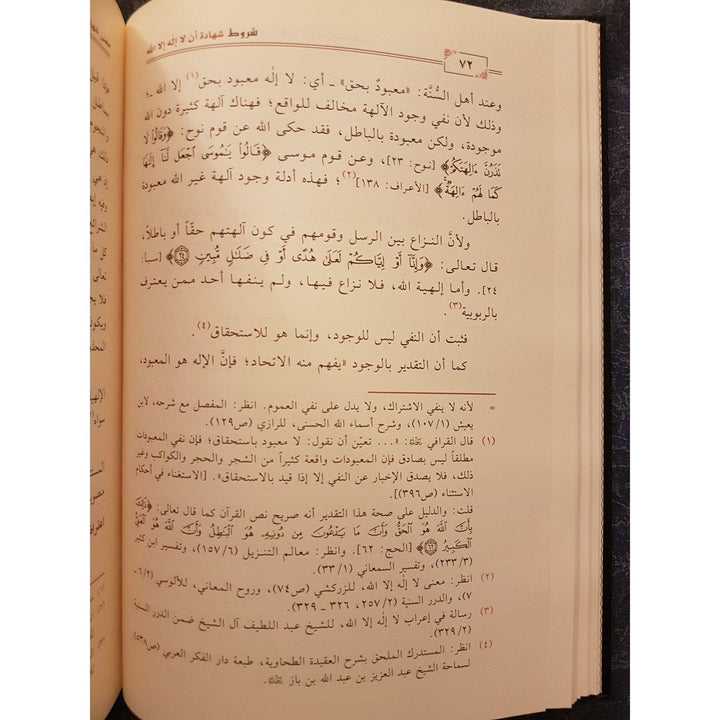 ٧٢
شروط شهادة أن لا إله إلا الله
وعند أهل السُّنَّة: «معبودٌ بحق» ـ أي: لا إله معبود بحق(١) إلا الله ـ؛
وذلك لأن نفي وجود الآلهة مخالف للواقع؛ فهناك آلهة كثيرة دون الله
موجودة، ولكن معبودة بالباطل، فقد حكى الله عن قوم نوح: ﴿وَقَالُوا۟ لَا
تَذَرُنَّ ءَالِهَتَكُمْ﴾ [نوح: ٢٣]، وعن قوم موسى ﴿قَالُوا۟ يَـٰمُوسَى ٱجْعَل لَّنَآ إِلَـٰهًا
كَمَا لَهُمْ ءَالِهَةٌ﴾ [الأعراف: ١٣٨](٢)؛ فهذه أدلة وجود آلهة غير الله معبودة
بالباطل.
ولأنَّ النزاع بين الرسل وقومهم في كون آلهتهم حقّاً أو باطلاً،
قال تعالى: ﴿وَإِنَّآ أَوْ إِيَّاكُمْ لَعَلَىٰ هُدًى أَوْ فِى ضَلَـٰلٍ مُّبِينٍ ٢٤﴾ [سبأ:
٢٤]. وأما إلهية الله، فلا نزاع فيها، ولم ينفها أحد ممن يعترف
بالربوبية(٣).
فثبت أن النفي ليس للوجود، وإنما هو للاستحقاق(٤).
كما أن التقدير بالوجود «يفهم منه الاتحاد؛ فإنَّ الإله هو المعبود،
= لأنه لا ينفي الاشتراك، ولا يدل على نفي العموم. انظر: المفصل مع شرحه، لابن
يعيش (١٠٧/١)، وشرح أسماء الله الحسنى، للرازي (ص١٢٩).
(١) قال القرافي رَحِمَهُ اللهُ: «... تعيّن أن نقول: لا معبود باستحقاق؛ فإن نفي المعبودات
مطلقاً ليس بصادق فإن المعبودات واقعة كثيراً من الشجر والحجر والكواكب وغير
ذلك، فلا يصدق الإخبار عن النفي إلا إذا قيد بالاستحقاق». [الاستغناء في أحكام
الاستثناء (ص٣٩٦)].
قلت: والدليل على صحة هذا التقدير أنه صريح نص القرآن كما قال تعالى: ﴿ذَٰلِكَ
بِأَنَّ ٱللَّهَ هُوَ ٱلْحَقُّ وَأَنَّ مَا يَدْعُونَ مِن دُونِهِۦ هُوَ ٱلْبَـٰطِلُ وَأَنَّ ٱللَّهَ هُوَ ٱلْعَلِىُّ
ٱلْكَبِيرُ ٦٢﴾ [الحج: ٦٢]. وانظر: معالم التنزيل (١٥٧/٦)، وتفسير ابن كثير
(٢٣٣/٣)، وتفسير السمعاني (٣٣/١).
(٢) انظر: معنى لا إله إلا الله، للزركشي (ص٧٤)، وروح المعاني، للآلوسي (٦/٢ ـ
٧)، والدرر السنية (٢٥٧/٢، ٣٢٦ ـ ٣٢٩).
(٣) رسالة في إعراب لا إله إلا الله، للشيخ عبد اللطيف آل الشيخ ضمن الدرر السنية
(٣٢٩/٢).
(٤) انظر: المستدرك الملحق بشرح العقيدة الطحاوية، طبعة دار الفكر العربي (ص٥٣٨)
لسماحة الشيخ عبد العزيز بن عبد الله بن باز رَحِمَهُ اللهُ.